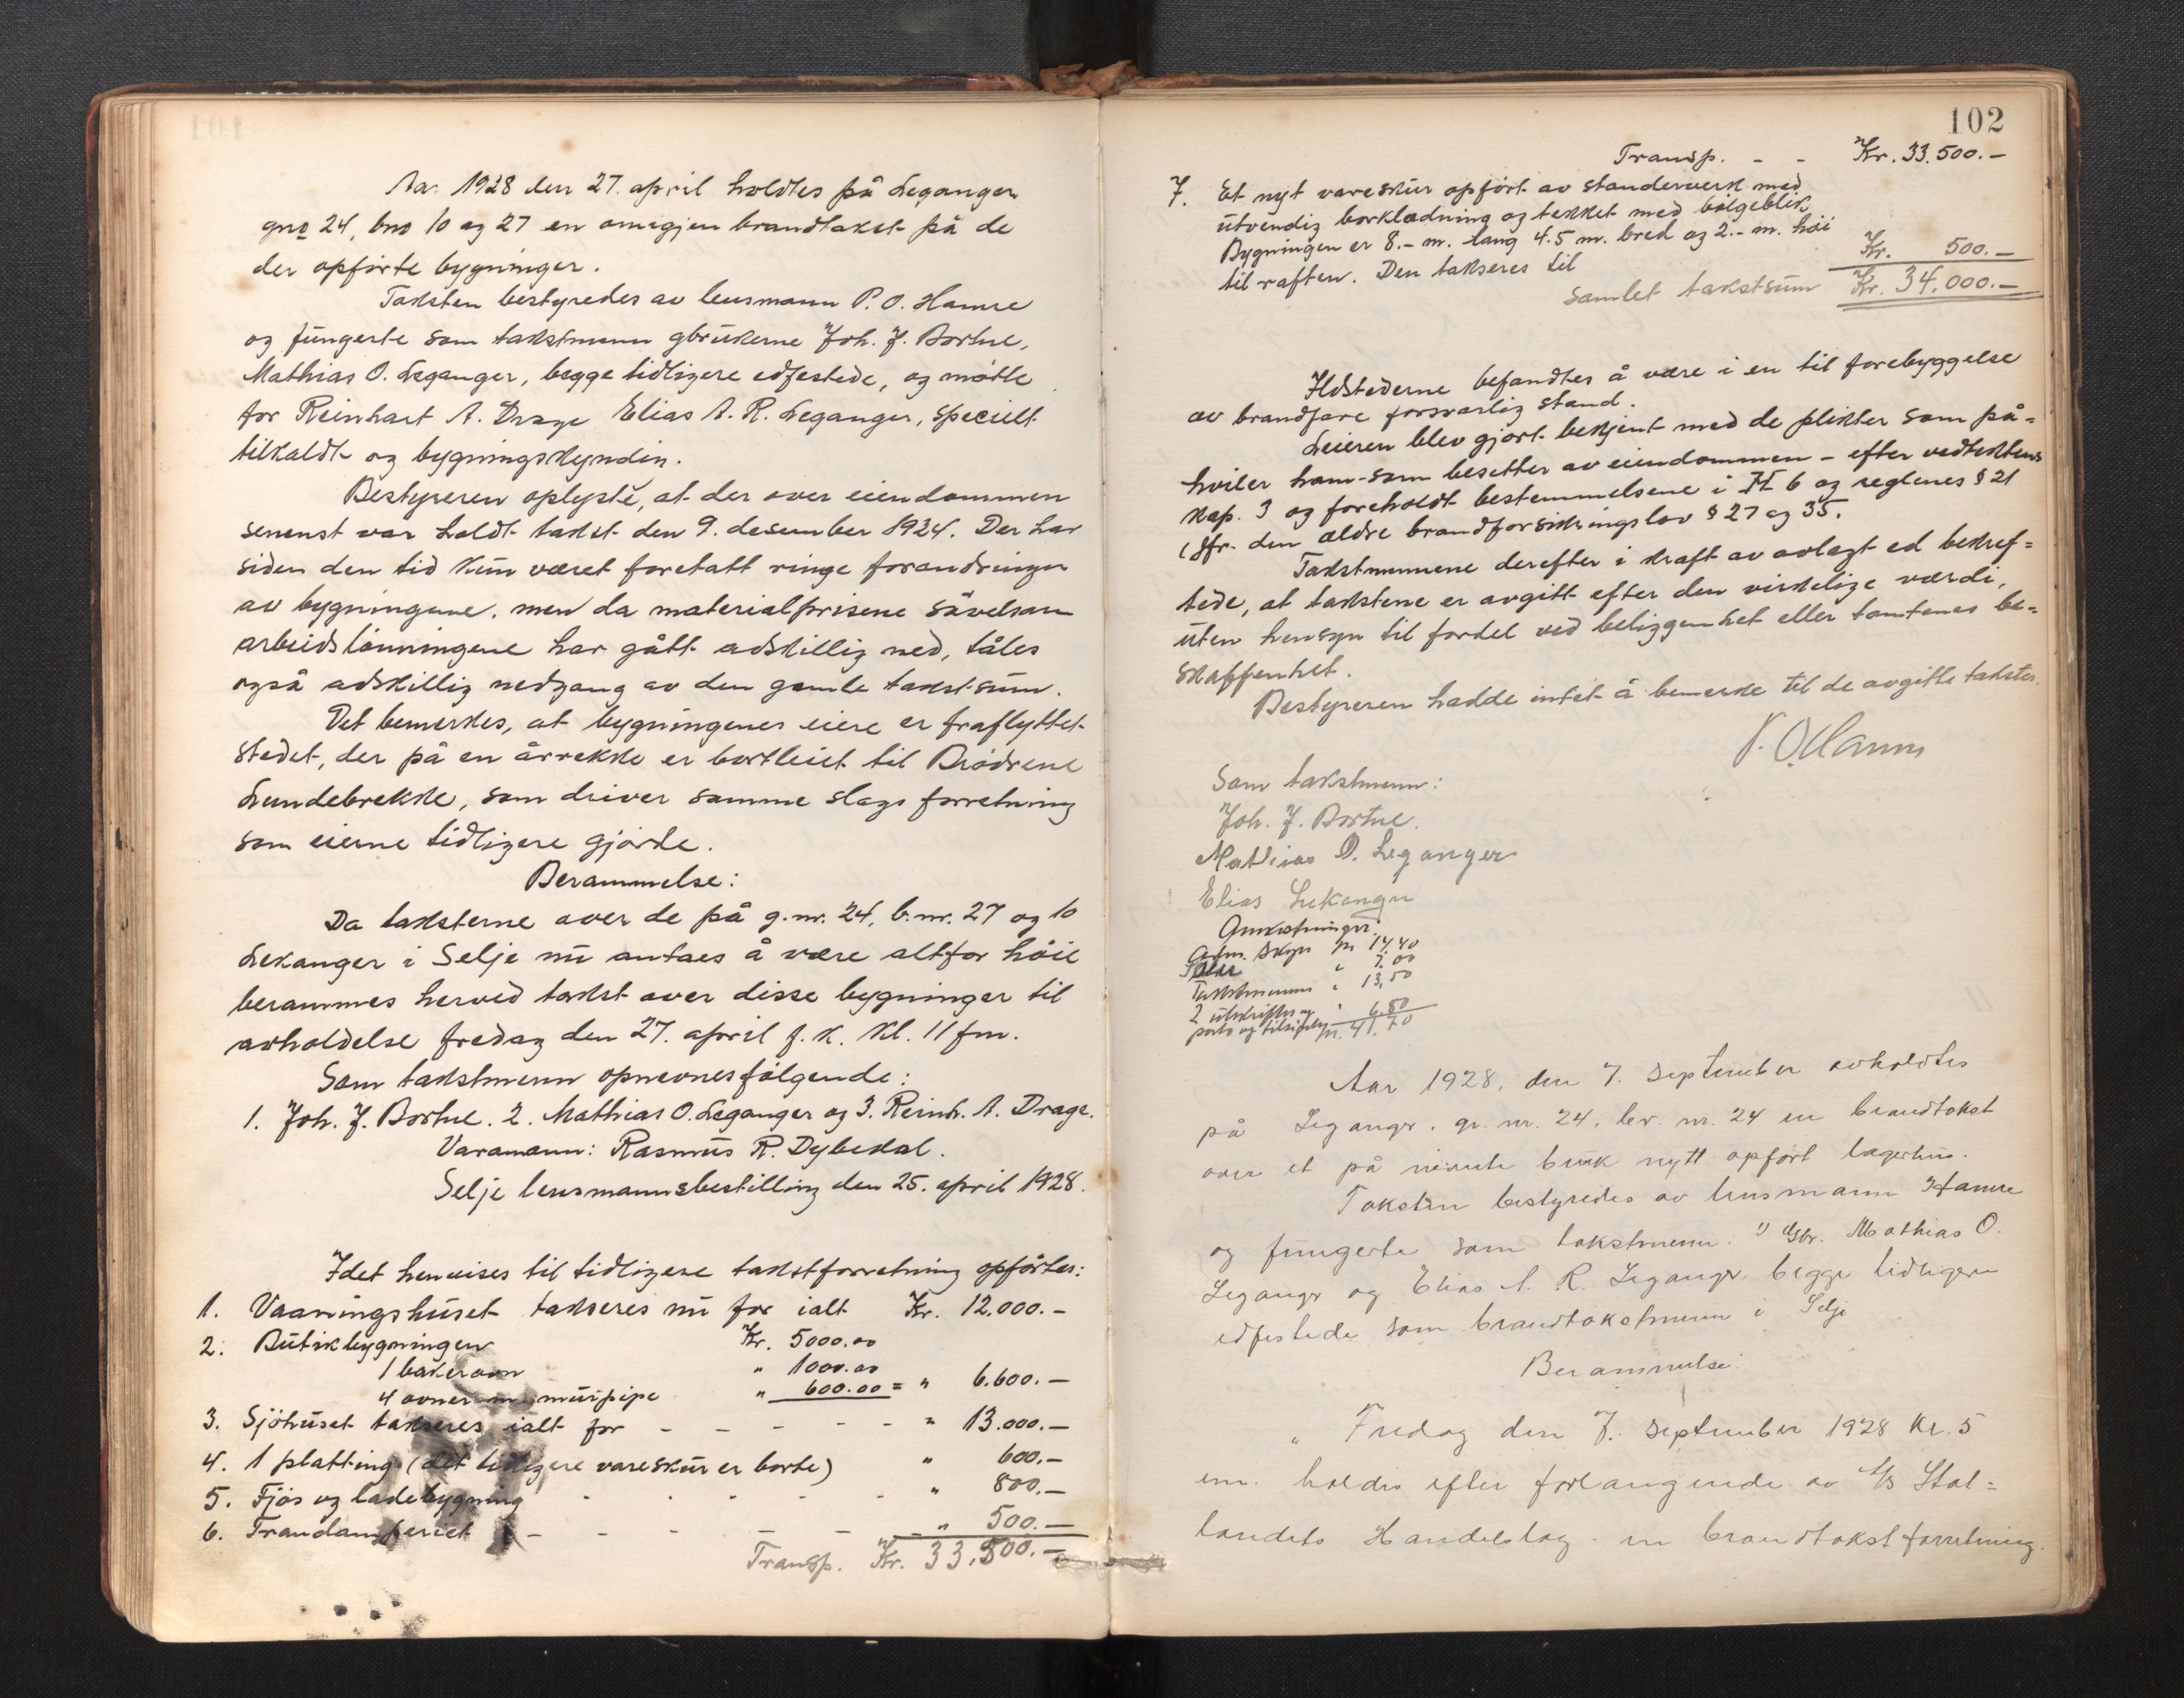 Aar 1928 den 27. april holdtes på Leganger
gno 24, bno 10 og 27 en omigjen brandtakst på de
der opførte bygninger.
Taksten bestyredes av lensmann P. O. Hamre
og fungerte som takstmenn gbrukerne Joh. J. Bortne,
Mathias O. Leganger, begge tidligere edfestede, og møtte
for Reinhart A. Drage Elias A. R. Leganger, specielt
tilkaldt og bygningskyndin.
Bestyreren oplyste, at der over eiendommen
senenst var holdt takst den 9. desember 1924. Der har
siden den tid kun været foretatt ringe forandringer
av bygningene, men da materialprisene såvelsom
arbeidslønningene har gått adskillig ned, tåles
også adskillig nedgang av den gamle takstsum.
Det bemerkes, at bygningenes eiere er fraflyttet
stedet, der på en årrekke er bortleiet til Brødrene
Lundebrekke, som driver samme slags forretning
som eierne tidligere gjorde.
Berammelse:
Da taksterne over de på g.nr. 24, b.nr. 27 og 10
Lekanger i Selje nu antaes å være altfor høie
berammes herved takst over disse bygninger til
avholdelse fredag den 27. april f. k. kl. 11 fm.
Som takstmenn opnevnes følgende:
1. Joh. J. Bortne. 2. Mathias O. Leganger og 3. Reinh. A. Drage.
Varamann: Rasmus R. Dybedal.
Selje lensmannsbestilling den 25. april 1928.
Idet henvises til tidligere takstforretning opføres:
1. Vaaningshuset takseres nu for ialt Kr. 12.000.–
2. Butikbygningen Kr. 5000.00
1 bakerovn " 1000.00
4 ovner m. murpipe " 600.00 = " 6.600.–
3. Sjøhuset takseres ialt for - - - - - " 13.000.–
4. 1 platting (det tidligere vareskur er borte) " 600.–
5. Fjøs og ladebygning - - - - - " 800.–
6. Trandamperiet - - - - - - " 500.–
Transp. Kr. 33.500.–
102
Transp. - - Kr. 33.500.–
7. Et nyt vareskur opført av standerverk med
utvendig borklædning og tekket med bølgeblik
Bygningen er 8.- m. lang 4.5 m. bred og 2.- m. høi
til raften. Den takseres til Kr. 500.–
Samlet takstsum Kr. 34.000.–
Ildstederne befandtes å være i en til forebyggelse
av brandfare forsvarlig stand.
Leieren blev gjort bekjent med de plikter som på=
hviler ham - som besitter av eiendommen - efter vedtektens
kap. 3 og foreholdt bestemmelsene i II 6 og reglenes § 21
(Jfr. den ældre brandforsikringslov § 27 og 35.
Takstmennene derefter i kraft av avlagt ed bekref=
tede, at takstene er avgitt efter den virkelige værdi,
uten hensyn til fordel ved beliggenhet eller tomtenes be=
skaffenhet.
Bestyreren hadde intet å bemerke til de avgitte takster.
P. O. Hamre
Som takstmenn:
Joh. J. Bortne.
Mathias O. Leganger
Elias Lekanger
Omkostninger:
Adm. skyss kr 14.40
" 7.00
Takstmennene " 13,50
2 utskrifter og " 6.80
porto og kr. 41.70
Aar 1928, den 7. september avholdtes
på Leganger. gr. nr. 24. br. nr. 24 en brandtakst
over et på nevnte bruk nytt opført lagerhus.
Taksten bestyredes av lensmann Hamre
og fungerte som takstmenn: Gbr. Mathias O.
Leganger og Elias A. R. Leganger, begge tidligere
edfestede som brandtakstmenn i Selje
Berammelse:
" Fredag den 7. september 1928 kl. 5
em. holdes efter forlangende av A/S Stat=
landets Handelslag en brandtakstforretning